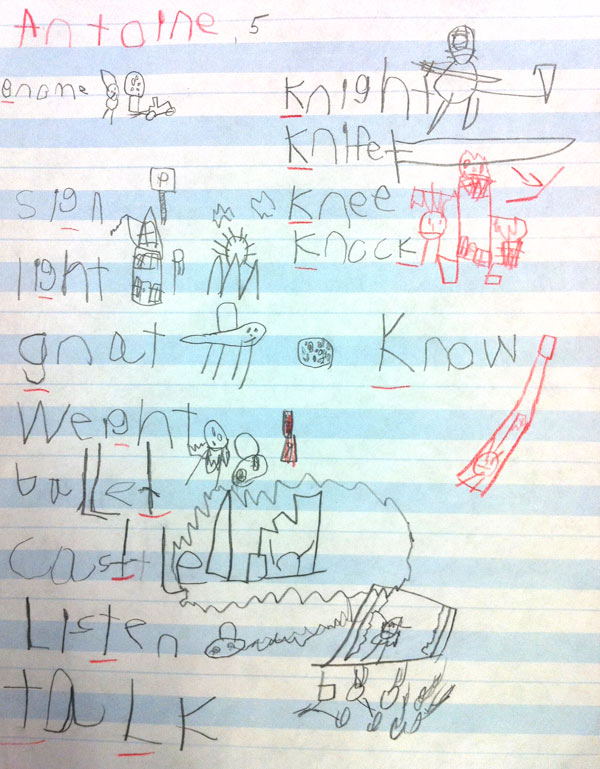 Antoine, 5
gnome
sign
P
light
gnat
Weight
baLLet
CastLe
Listen
taLK
Knight
Knife
Knee
Knock
Know